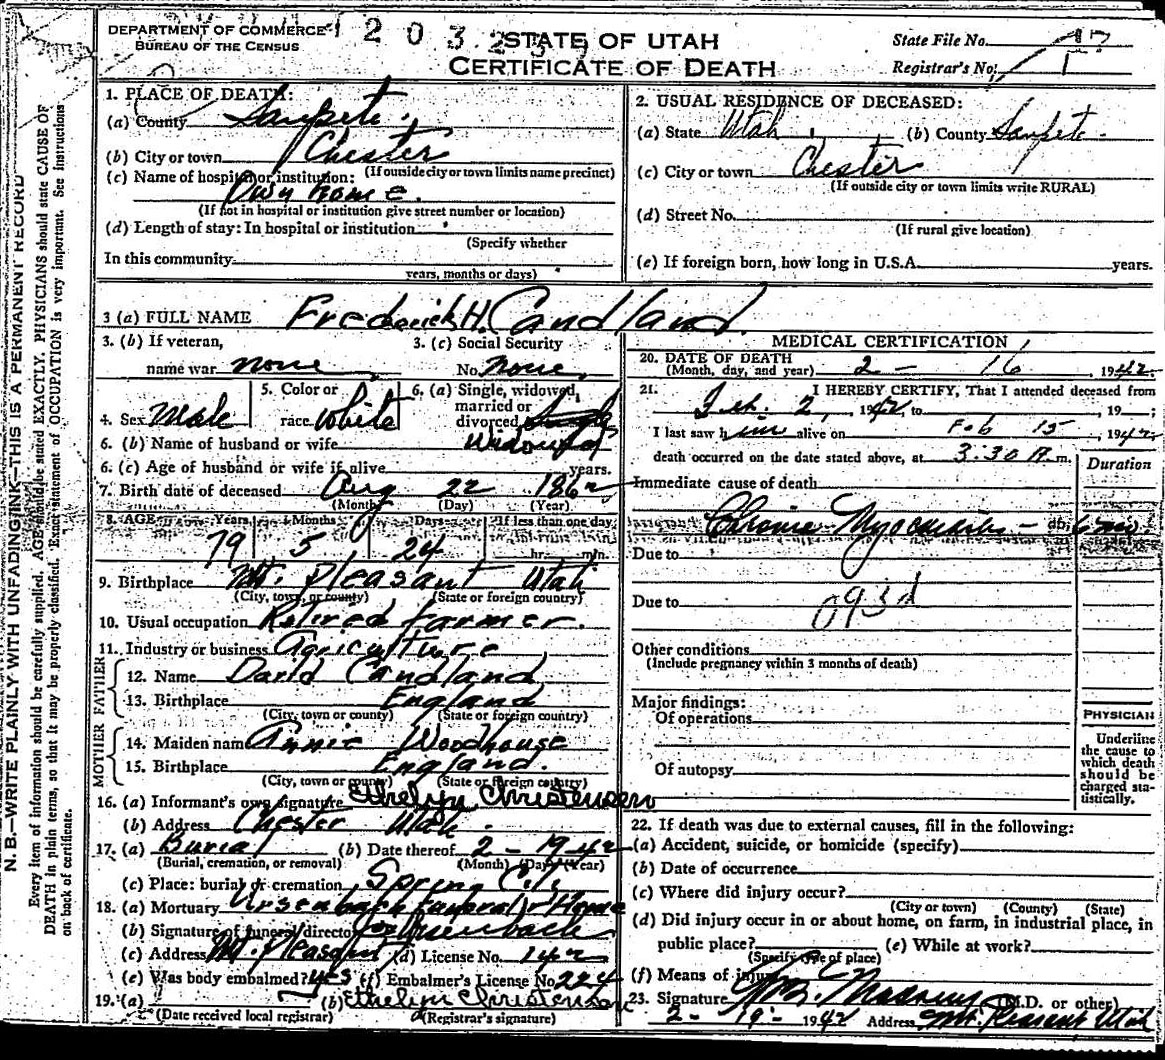 DEPARTMENT OF COMMERCE
BUREAU OF THE CENSUS
STATE OF UTAH
CERTIFICATE OF DEATH
State File No.
Registrar's No.
N. B.—WRITE PLAINLY WITH UNFADING INK—THIS IS A PERMANENT RECORD
Every item of information should be carefully supplied. AGE should be stated EXACTLY. PHYSICIANS should state CAUSE OF
DEATH in plain terms, so that it may be properly classified. Exact statement of OCCUPATION is very important. See instructions
on back of certificate.
1. PLACE OF DEATH:
(a) County Sanpete
(b) City or town Chester
(If outside city or town limits name precinct)
(c) Name of hospital or institution:
Own home.
(If not in hospital or institution give street number or location)
(d) Length of stay: In hospital or institution
(Specify whether
In this community
years, months or days)
2. USUAL RESIDENCE OF DECEASED:
(a) State Utah (b) County Sanpete
(c) City or town Chester
(If outside city or town limits write RURAL)
(d) Street No.
(If rural give location)
(e) If foreign born, how long in U.S.A. years.
3 (a) FULL NAME Frederick H. Candland
3. (b) If veteran,
name war none
3. (c) Social Security
No. none
4. Sex Male
5. Color or
race White
6. (a) Single, widowed,
married or
divorced
Widowed
6. (b) Name of husband or wife
6. (c) Age of husband or wife if alive years.
7. Birth date of deceased Aug 22 1862
(Month) (Day) (Year)
8. AGE Years Months Days If less than one day
79 5 24 hr. min.
9. Birthplace Mt. Pleasant Utah
(City, town or county) (State or foreign country)
10. Usual occupation Retired farmer.
11. Industry or business Agriculture
FATHER
12. Name David Candland
13. Birthplace England
(City, town or county) (State or foreign country)
MOTHER
14. Maiden name Annie Woodhouse
15. Birthplace England.
(City, town or county) (State or foreign country)
16. (a) Informant's own signature Ethelyn Christensen
(b) Address Chester Utah.
17. (a) Burial (b) Date thereof 2 - 19 42
(Burial, cremation, or removal) (Month) (Day) (Year)
(c) Place: burial or cremation Spring City
18. (a) Mortuary Ursenbach Funeral Home
(b) Signature of funeral director Ursenbach
(c) Address Mt. Pleasant (d) License No. 142
(e) Was body embalmed? yes (f) Embalmer's License No. 224
19. (a) (b) Ethelyn Christensen
(Date received local registrar) (Registrar's signature)
MEDICAL CERTIFICATION
20. DATE OF DEATH
(Month, day, and year) 2 - 16, 1942
21. I HEREBY CERTIFY, That I attended deceased from
2, 1942 to , 19 ;
I last saw him alive on Feb 15, 1942
death occurred on the date stated above, at 3:30 A m.
Duration
Immediate cause of death
Chronic Myocarditis - 6 mo
Due to
Due to 093d
Other conditions
(Include pregnancy within 3 months of death)
Major findings:
Of operations
Of autopsy
PHYSICIAN
Underline
the cause to
which death
should be
charged sta-
tistically.
22. If death was due to external causes, fill in the following:
(a) Accident, suicide, or homicide (specify)
(b) Date of occurrence
(c) Where did injury occur?
(City or town) (County) (State)
(d) Did injury occur in or about home, on farm, in industrial place, in
public place? (e) While at work?
(Specify type of place)
(f) Means of injury
23. Signature (M.D. or other)
2 - 19 - 1942 Address Mt. Pleasant Utah